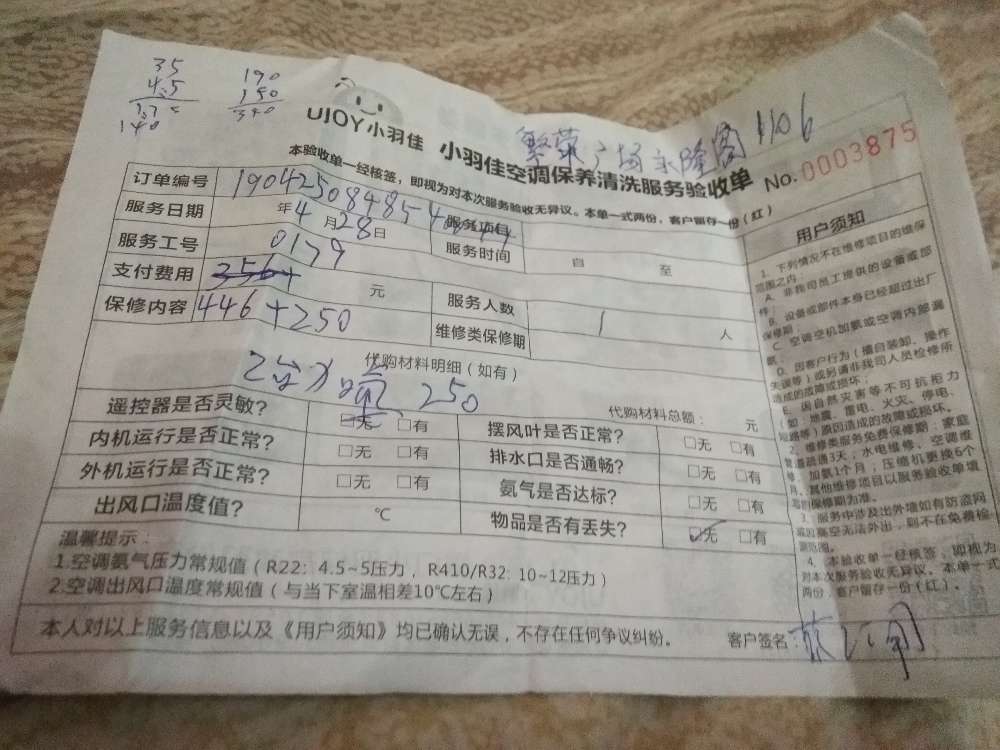 35
4.5
140
190
150
340
UJOY小羽佳 小羽佳空调保养清洗服务验收单
繁荣广场永隆阁1106
No.0003875
本验收单一经核签，即视为对本次服务验收无异议。本单一式两份，客户留存一份（红）
订单编号 服务项目
服务日期 年4月28日 服务时间 自 至
服务工号 0179
支付费用 元 服务人数 1 人
保修内容 446+250 维修类保修期
代购材料明细（如有）
250
代购材料总额： 元
遥控器是否灵敏？ □无 □有 摆风叶是否正常？ □无 □有
内机运行是否正常？ □无 □有 排水口是否通畅？ □无 □有
外机运行是否正常？ □无 □有 氨气是否达标？ □无 □有
出风口温度值？ ℃ 物品是否有丢失？ □无 □有
温馨提示：
1.空调氨气压力常规值（R22：4.5~5压力，R410/R32: 10~12压力）
2.空调出风口温度常规值（与当下室温相差10℃左右）
本人对以上服务信息以及《用户须知》均已确认无误，不存在任何争议纠纷。 客户签名：
用户须知
1、下列情况不在维修项目的维保
范围之内：
A、非我司员工提供的设备或部
件；
B、设备或部件本身已经超过出厂
保修期；
C、空调空机加氨或空调内部漏
氨；
D、因客户行为（擅自装卸、操作
失误等）或另请非我司人员检修所
造成的故障或损坏；
E、因自然灾害等不可抗拒力
（如：地震、雷电、火灾、停电、
短路等）原因造成的故障或损坏。
2、维修类服务免费保修期：家庭
管道疏通3天；水电维修、空调维
修、加氨1个月；压缩机更换6个
月。其他维修项目以服务验收单填
写的保修期为准。
3、服务中涉及出外墙如有防盗网
或因高空无法外出，则不在免费检
测范围。
4、本验收单一经核签，即视为
对本次服务验收无异议。本单一式
两份，客户留存一份（红）。